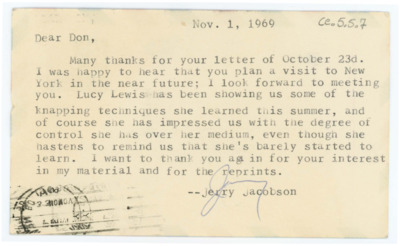 Nov. 1, 1969
Cc.5.5.7
Dear Don,
Many thanks for your letter of October 23d.
I was happy to hear that you plan a visit to New
York in the near future; I look forward to meeting
you. Lucy Lewis has been showing us some of the
knapping techniques she learned this summer, and
of course she has impressed us with the degree of
control she has over her medium, even though she
hastens to remind us that she's barely started to
learn. I want to thank you again for your interest
in my material and for the reprints.
--Jerry Jacobson